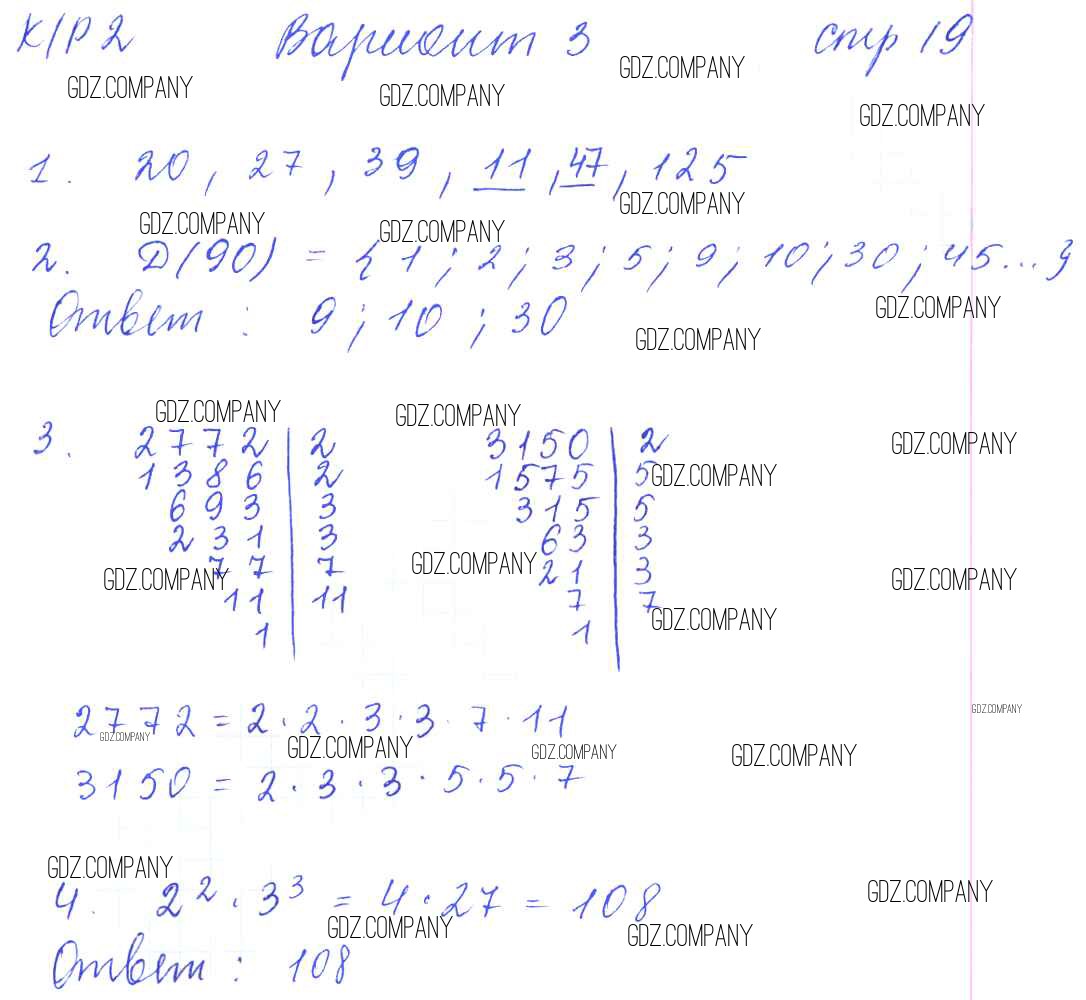 К/Р 2 Вариант 3 стр 19
GDZ.COMPANY GDZ.COMPANY GDZ.COMPANY GDZ.COMPANY
1. 20, 27, 39, 11, 47, 125
GDZ.COMPANY GDZ.COMPANY GDZ.COMPANY
2. Д(90) = {1; 2; 3; 5; 9; 10; 30; 45...}
Ответ: 9; 10; 30
GDZ.COMPANY GDZ.COMPANY
GDZ.COMPANY GDZ.COMPANY
3. 2772 | 2 3150 | 2
GDZ.COMPANY
1386 | 2 1575 | 5
GDZ.COMPANY
693 | 3 315 | 5
231 | 3 63 | 3
77 | 7 21 | 3
GDZ.COMPANY GDZ.COMPANY GDZ.COMPANY
11 | 11 7 | 7
GDZ.COMPANY
1 1
2772 = 2 · 2 · 3 · 3 · 7 · 11
GDZ.COMPANY
GDZ.COMPANY GDZ.COMPANY GDZ.COMPANY GDZ.COMPANY
3150 = 2 · 3 · 3 · 5 · 5 · 7
GDZ.COMPANY
4. 2² · 3³ = 4 · 27 = 108
GDZ.COMPANY
GDZ.COMPANY GDZ.COMPANY
Ответ: 108